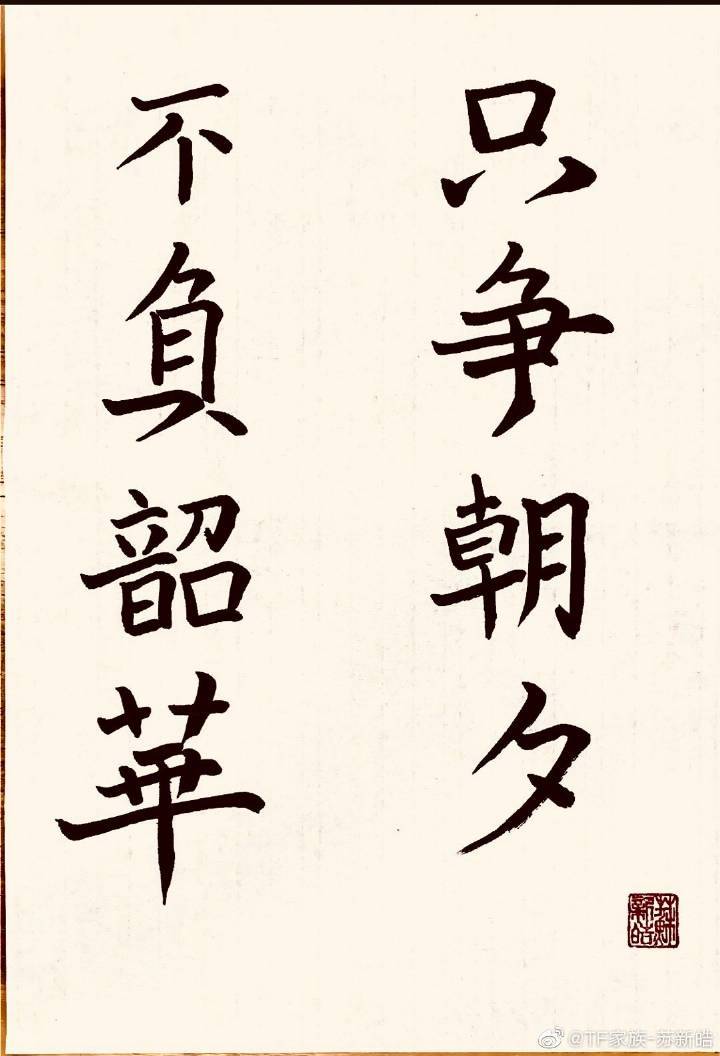 只争朝夕
不負韶華
蘇新皓
@TF家族-苏新皓